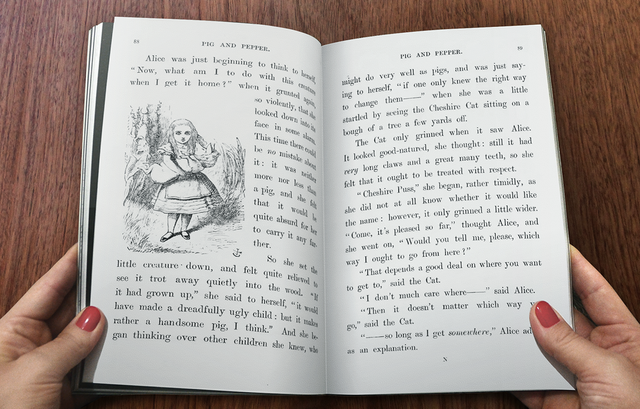 88
PIG AND PEPPER.
Alice was just beginning to think to herself,
"Now, what am I to do with this creature
when I get it home?" when it grunted again,
so violently, that she
looked down into its
face in some alarm.
This time there could
be no mistake about
it: it was neither
more nor less than
a pig, and she felt
that it would be
quite absurd for her
to carry it any fur-
ther.
So she set the
little creature down, and felt quite relieved to
see it trot away quietly into the wood. "If
it had grown up," she said to herself, "it would
have made a dreadfully ugly child: but it makes
rather a handsome pig, I think." And she be-
gan thinking over other children she knew, who
PIG AND PEPPER.
89
might do very well as pigs, and was just say-
ing to herself, "if one only knew the right way
to change them——" when she was a little
startled by seeing the Cheshire Cat sitting on a
bough of a tree a few yards off.
The Cat only grinned when it saw Alice.
It looked good-natured, she thought: still it had
very long claws and a great many teeth, so she
felt that it ought to be treated with respect.
"Cheshire Puss," she began, rather timidly, as
she did not at all know whether it would like
the name: however, it only grinned a little wider.
"Come, it's pleased so far," thought Alice, and
she went on, "Would you tell me, please, which
way I ought to go from here?"
"That depends a good deal on where you want
to get to," said the Cat.
"I don't much care where——" said Alice.
"Then it doesn't matter which way y
go," said the Cat.
"——so long as I get somewhere," Alice ad
as an explanation.
N